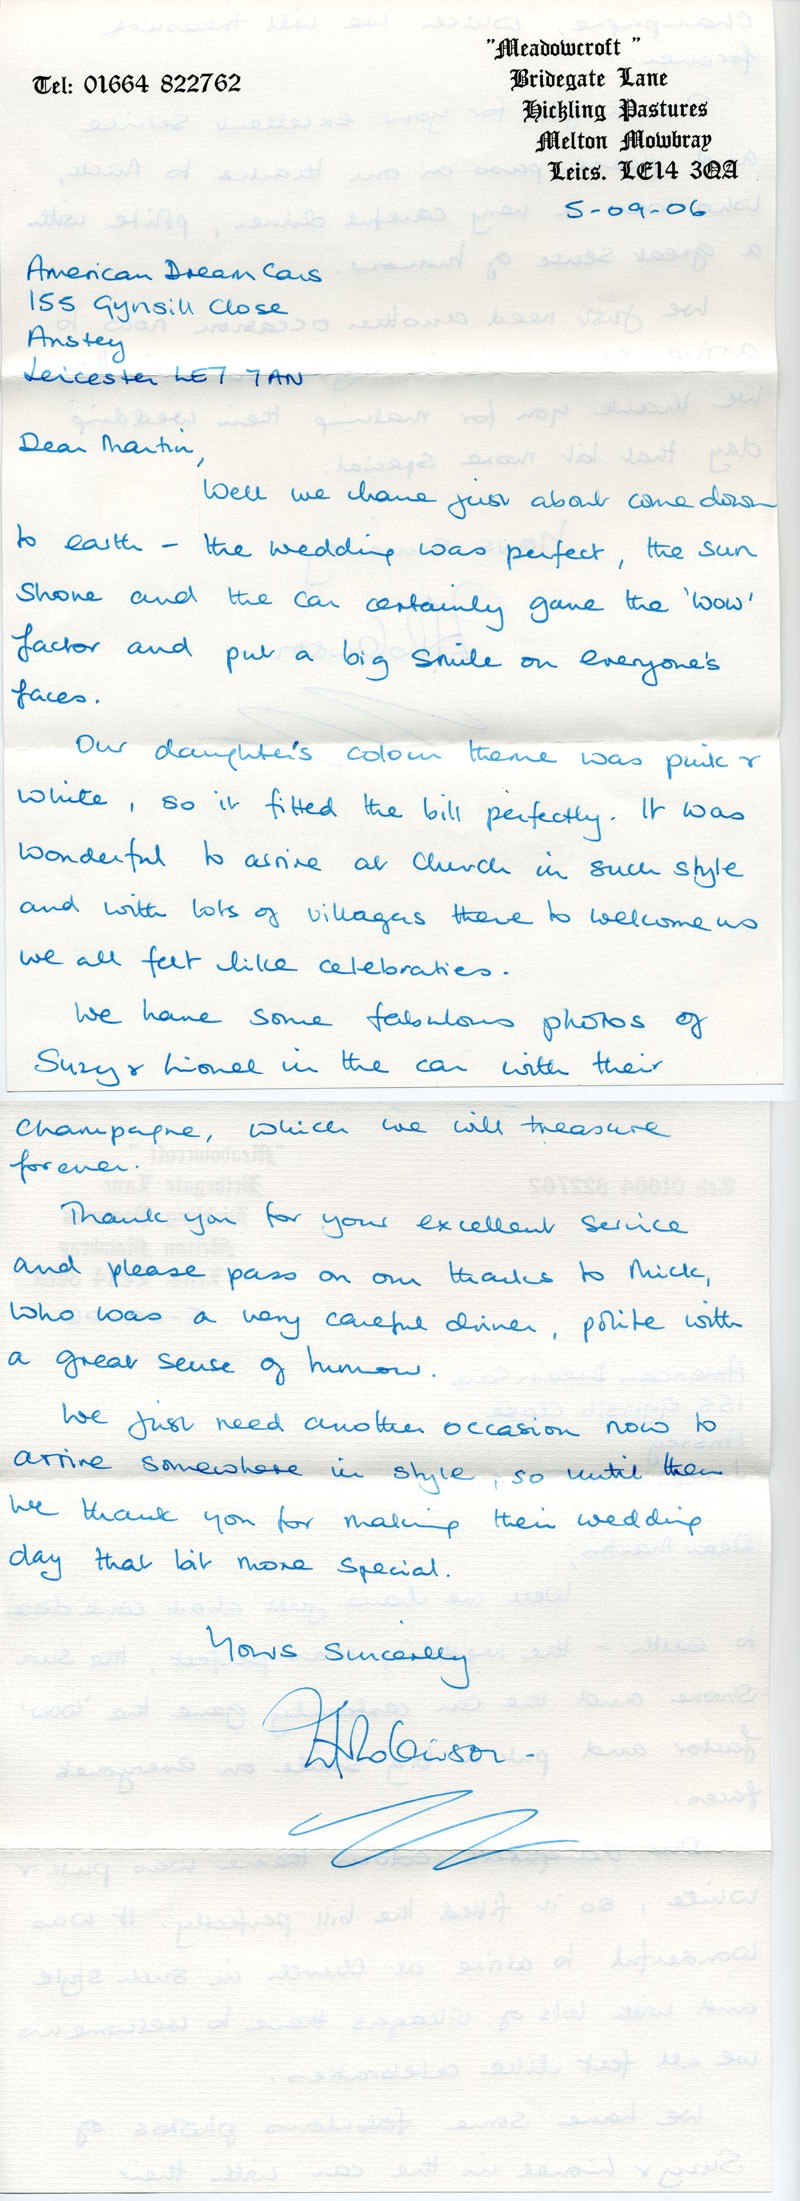 "Meadowcroft "
Tel: 01664 822762
Bridegate Lane
Hickling Pastures
Melton Mowbray
Leics. LE14 3QA
5-09-06
American Dream Cars
155 Gynsill Close
Anstey
Leicester LE7 7AN
Dear Martin,
Well we have just about come down
to earth – the wedding was perfect, the sun
shone and the car certainly gave the 'wow'
factor and put a big smile on everyone's
faces.
Our daughter's colour theme was pink &
white, so it fitted the bill perfectly. It was
wonderful to arrive at Church in such style
and with lots of villagers there to welcome us
we all felt like celebraties.
We have some fabulous photos of
Suzy & Lionel in the car with their
champagne, which we will treasure
forever.
Thank you for your excellent service
and please pass on our thanks to Mick,
who was a very careful driver, polite with
a great sense of humour.
We just need another occasion now to
arrive somewhere in style, so until then
we thank you for making their wedding
day that bit more special.
Yours sincerely
Robinson.